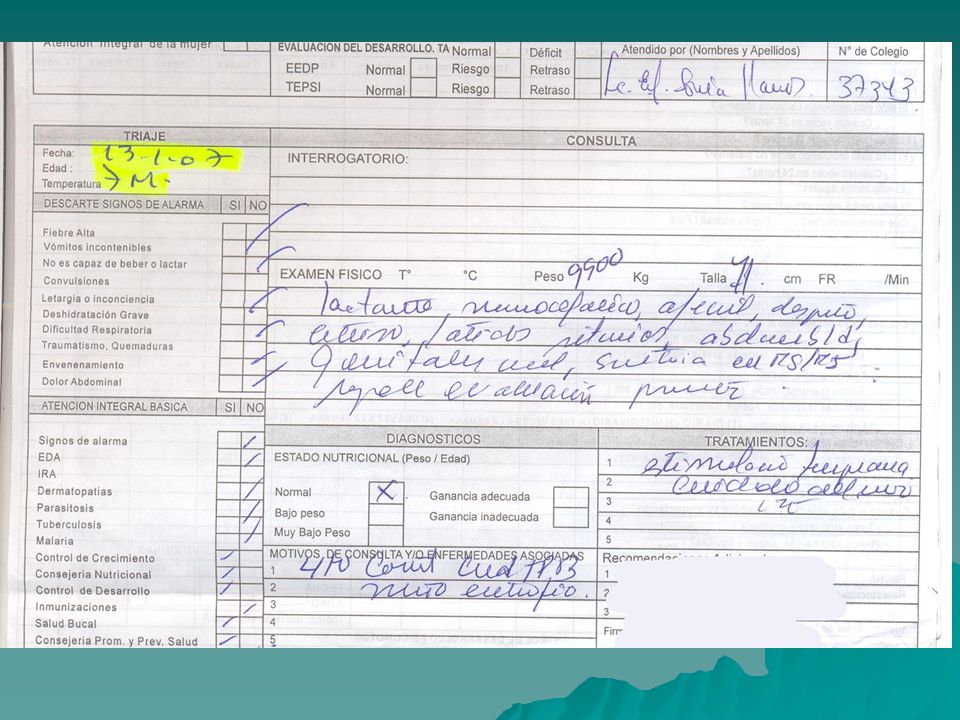 Atención Integral de la mujer
EVALUACIÓN DEL DESARROLLO. TA Normal Déficit
EEDP Normal Riesgo Retraso
TEPSI Normal Riesgo Retraso
Atendido por (Nombres y Apellidos) N° de Colegio
37343
TRIAJE
Fecha: 13-1-07
Edad : 7 M.
Temperatura
DESCARTE SIGNOS DE ALARMA SI NO
Fiebre Alta
Vómitos incontenibles
No es capaz de beber o lactar
Convulsiones
Letargia o Inconciencia
Deshidratación Grave
Dificultad Respiratoria
Traumatismo, Quemaduras
Envenenamiento
Dolor Abdominal
ATENCION INTEGRAL BASICA SI NO
Signos de alarma
EDA
IRA
Dermatopatías
Parasitosis
Tuberculosis
Malaria
Control de Crecimiento
Consejeria Nutricional
Control de Desarrollo
Inmunizaciones
Salud Bucal
Consejería Prom. y Prev. Salud
CONSULTA
INTERROGATORIO:
EXAMEN FISICO T° °C Peso 9900 Kg Talla 71. cm FR /Min
lactante, normocefalico, afebril, despierto,
activo, latidos ritmicos, abdomen b/d,
Genitales
evaluación
DIAGNOSTICOS
ESTADO NUTRICIONAL (Peso / Edad)
Normal X. Ganancia adecuada
Bajo peso Ganancia inadecuada
Muy Bajo Peso
MOTIVOS DE CONSULTA Y/O ENFERMEDADES ASOCIADAS
1 4to Cont Cred
2 niño eutrofico.
3
4
5
TRATAMIENTOS:
1 estimulación temprana
2 Cuidado del niño
3
4
5
1
2
3